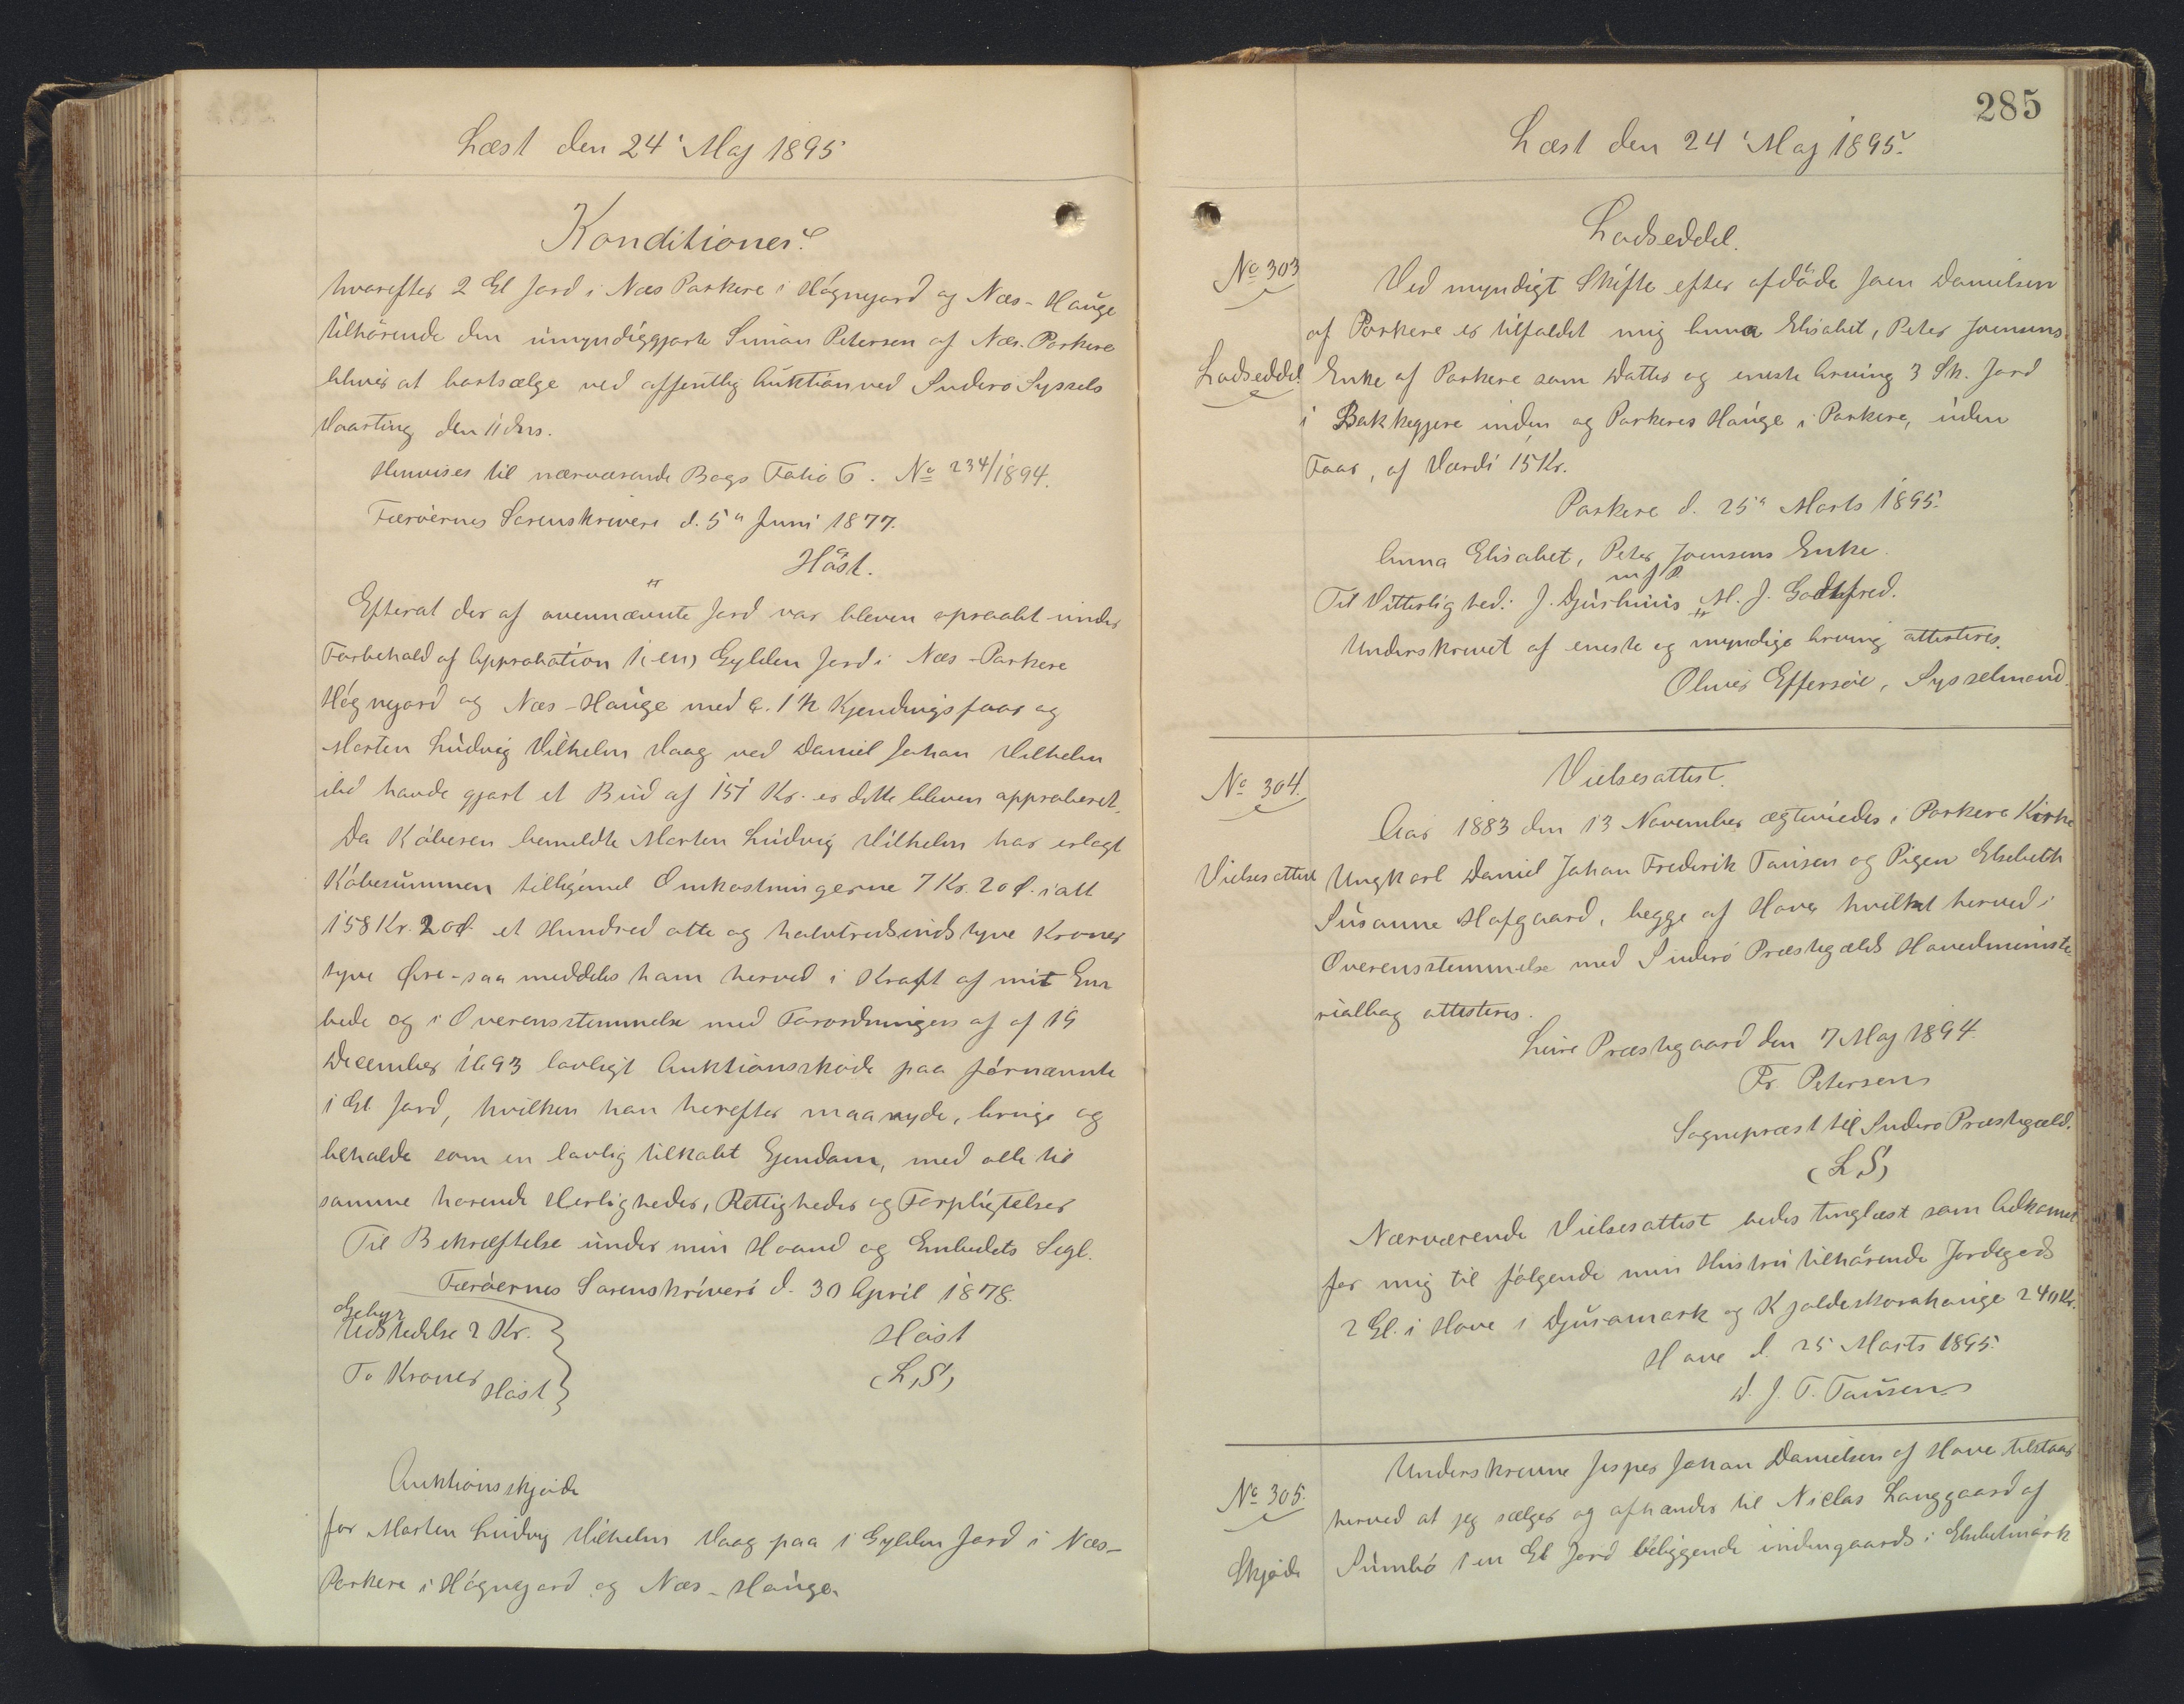 Læst den 24' Maj 1895
Konditioner
hvorefter 2 Gl Jord i Næs Porkere i Högnegord og Næs-Hauge
tilhörende den umyndiggjorte Simon Petersen af Næs. Porkere
bliver at bortsælge ved offentlig Auktion ved Suderö Syssels
Vaarting den 11 dns.
Henvises til nærværende Bogs Folio 6. No 234/1894.
Færöernes Sorenskriveri d. 5" Juni 1877.
Höst.
Efterat der af ovennævnte Jord var bleven opraabt under
Forbehold af Approbation 1 (en) Gylden Jord i Næs-Porkere
Högnegord og Næs-Hauge med Kjendingsfaar og
Morten Ludvig Vilhelm Vaag ved Daniel Johan Vilhelm
ibd havde gjort et Bud af 151 Kr. er dette bleven approberet.
Da Köberen bemeldte Morten Ludvig Vilhelm har erlagt
Köbesummen tilligemed Omkostningerne 7 Kr. 20 Ø. i alt
158 Kr. 20 Ø. et Hundred otte og halvtredsindstyve Kroner
tyve Øre - saa meddeles ham herved i Kraft af mit Em
bede og i Overensstemmelse med Forordningen af af 19
December 1693 lovligt Auktionsskøde paa fornævnte
1 Gl. Jord, hvilken han herefter maa nyde, bruge og
beholde som en lovlig tilkøbt Ejendom, med alle til
samme hørende Herligheder, Rettigheder og Forpligtelser
Til Bekræftelse under min Haand og Embedets Segl.
Færöernes Sorenskriveri d. 30 April 1878.
Gebyr
Udstedelse 2 Kr.
Höst
To Kroner
Höst
(L,S,)
Auktionsskjøde
for Morten Ludvig Vilhelm Vaag paa 1 Gylden Jord i Næs-
Porkere i Högnegord og Næs-Hauge.
285
Læst den 24' Maj 1895.
Lodseddel.
No 303
Ved myndigt Skifte efter afdöde Joen Danielsen
af Porkere er tilfaldet mig Anna Elisabet, Peter Joensens
Lodseddel
Enke af Porkere som Datter og eneste Arving 3 Sk. Jord
i Bakkegjere inden og Porkeres Hauge i Porkere, uden
Faar, af Værdi 15 Kr.
Porkere d. 25" Marts 1895.
Anna Elisabet, Peter Joensens Enke.
m f P
Til Vitterlighed: J. Djurhuus M. J. Godtfred.
Underskrevet af eneste og myndige Arving attesteres.
Oliver Effersøe, Sysselmand.
No 304.
Vielsesattest.
Aar 1883 den 13 November ægteviedes i Porkere Kirke
Vielsesattest
Ungkarl Daniel Johan Frederik Tausen og Pigen Elsebeth
Susanne Hofgaard, begge af Hove hvilket herved i
Overensstemmelse med Suderö Præstegælds Hovedministe
rialbog attesteres.
Præstegaard den 7 Maj 1894.
Fr. Petersen
Sognepræst til Suderö Præstegæld.
(L,S,)
Nærværende Vielsesattest bedes tinglæst som Adkomst
for mig til følgende min Hustru tilhörende Jordegods
2 Gl. i Hove i Djusamark og 240 Kr.
Hove d. 25 Marts 1895.
D. J. F. Tausen
No 305.
Underskrevne Jesper Johan Danielsen af Hove tilstaar
herved at jeg sælger og afhænder til Niclas Langgaard af
Skjøde
Sumbö 1 en Gl Jord beliggende indengaards i Elsebetmark